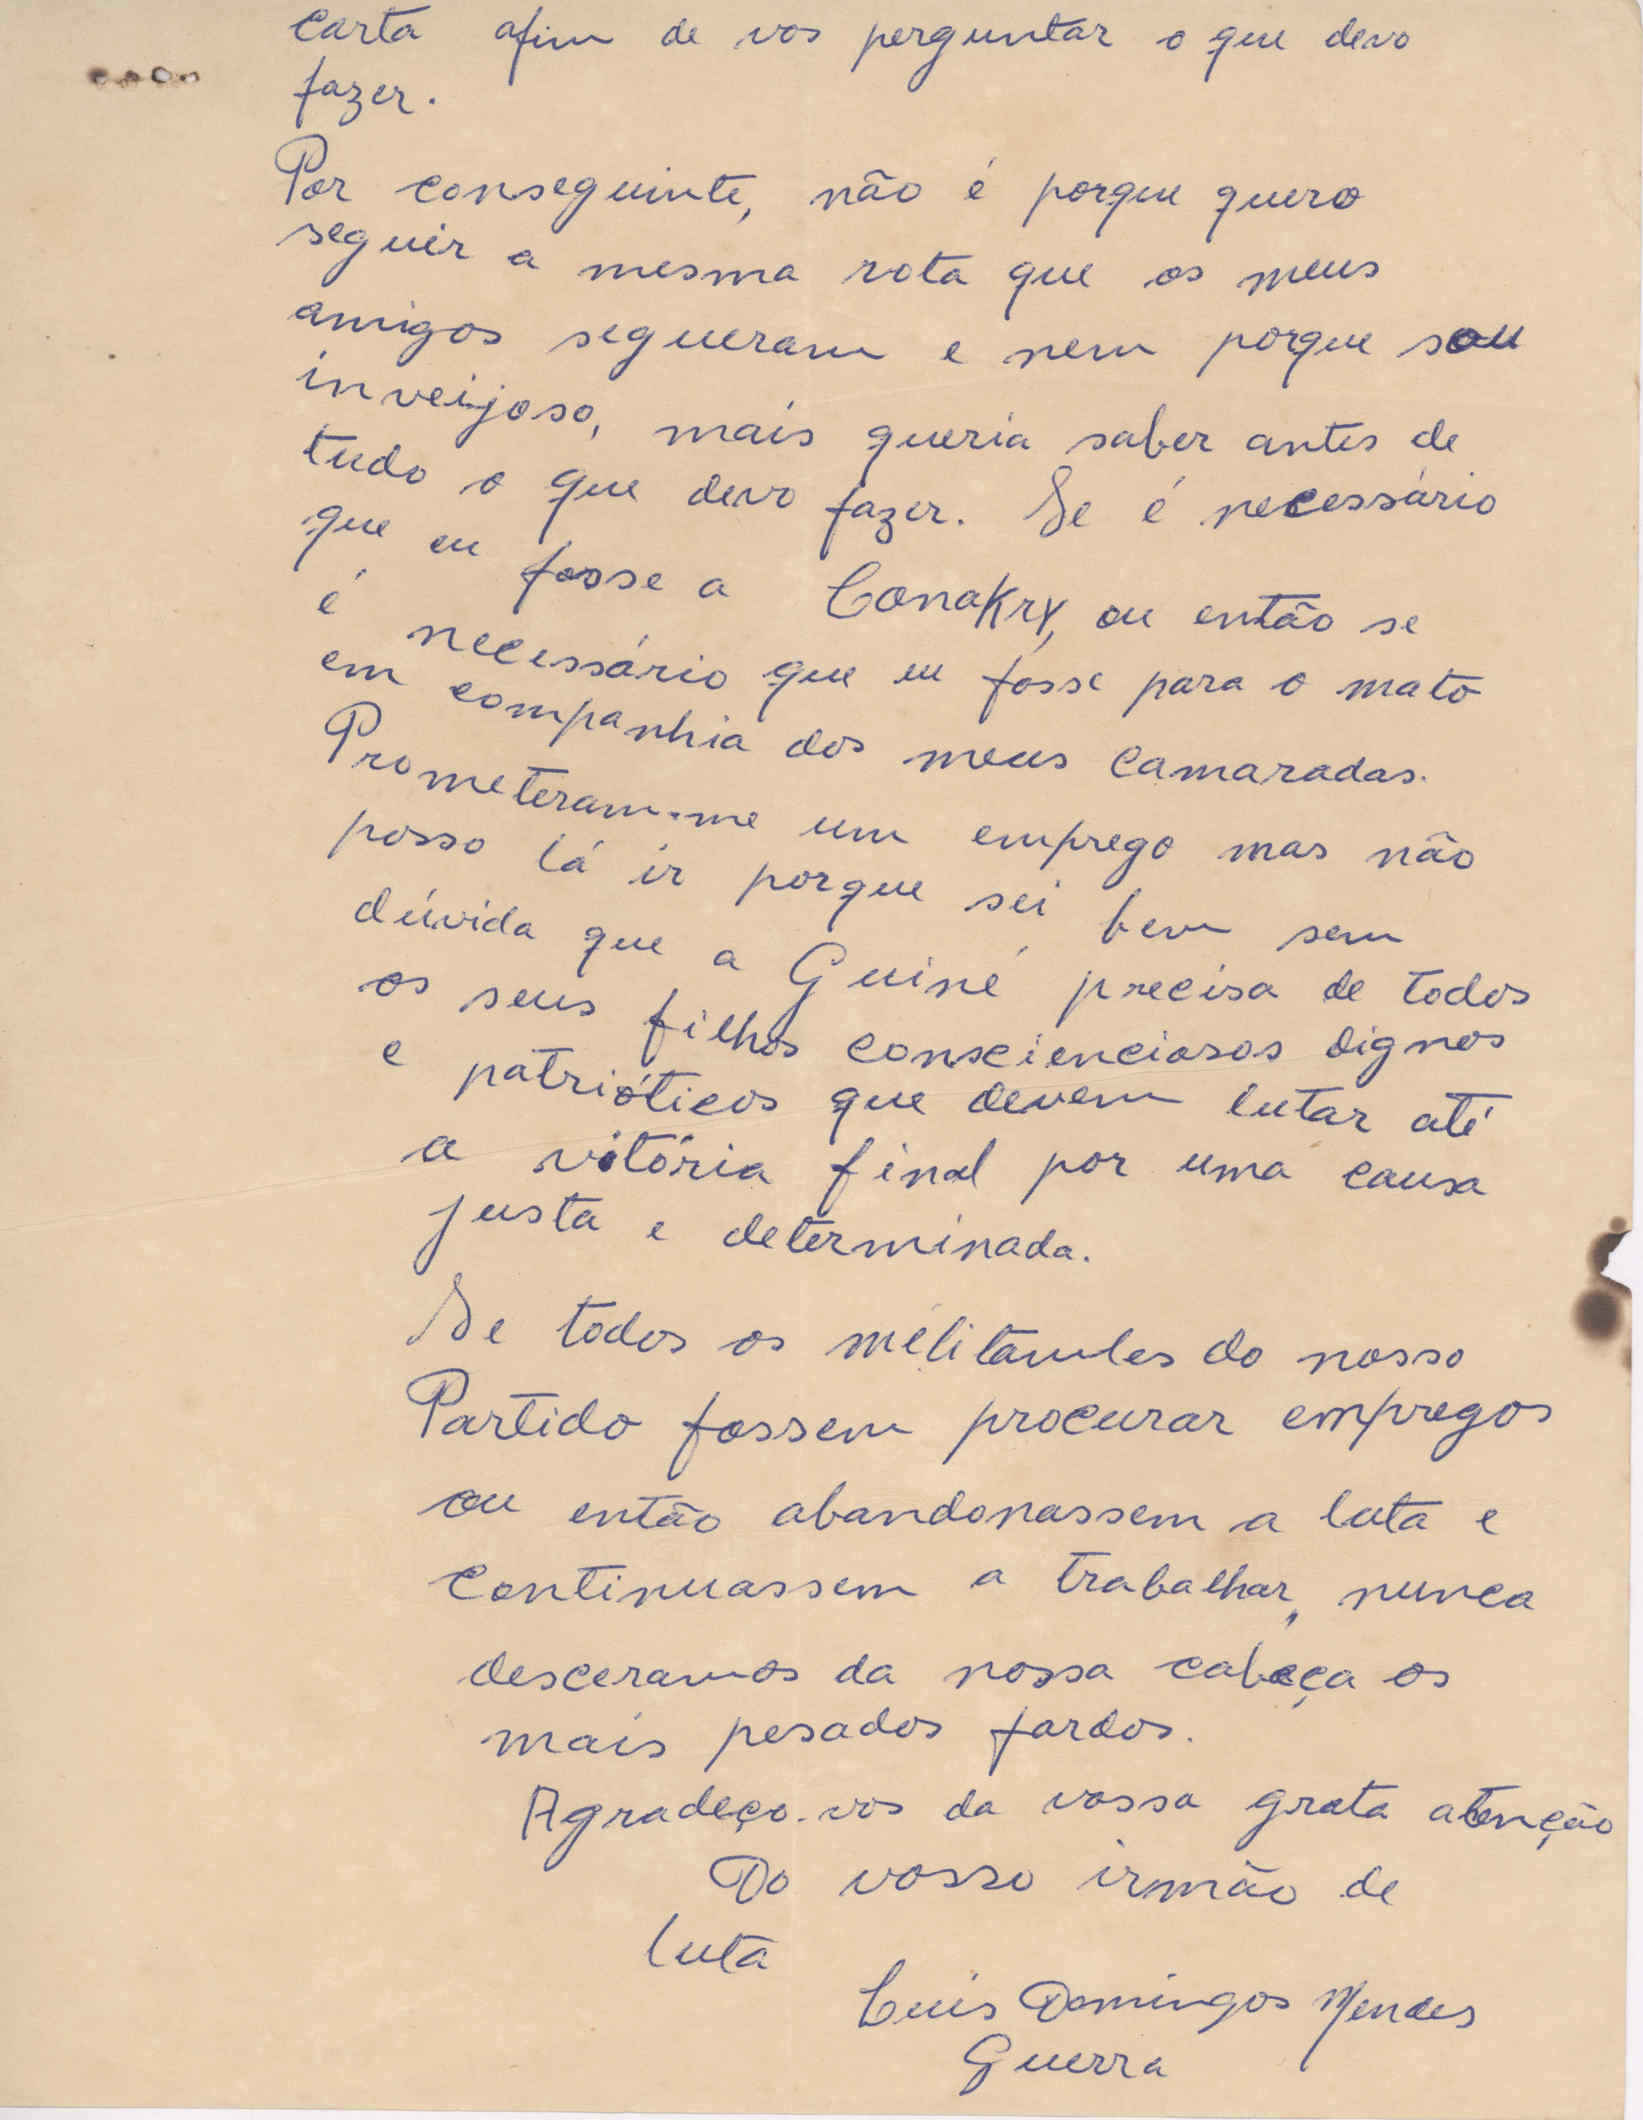 carta afim de vos perguntar o que devo
fazer.
Por conseguinte, não é porque quero
seguir a mesma rota que os meus
amigos segueram e nem porque sou
inveijoso, mais queria saber antes de
tudo o que devo fazer. Se é necessário
que eu fosse a Conakry, ou então se
é necessário que eu fosse para o mato
em companhia dos meus camaradas.
Prometeram-me um emprego mas não
posso lá ir porque sei bem sem
dúvida que a Guiné precisa de todos
os seus filhos conscienciosos dignos
e patrióticos que devem lutar até
a vitória final por uma causa
justa e determinada.
Se todos os mélitantes do nosso
Partido fossem procurar empregos
ou então abandonassem a luta e
continuassem a trabalhar, nunca
desceramos da nossa cabeça os
mais pesados fardos.
Agradeço-vos da vossa grata atenção
Do vosso irmão de
luta
Luis Domingos Mendes
Guerra